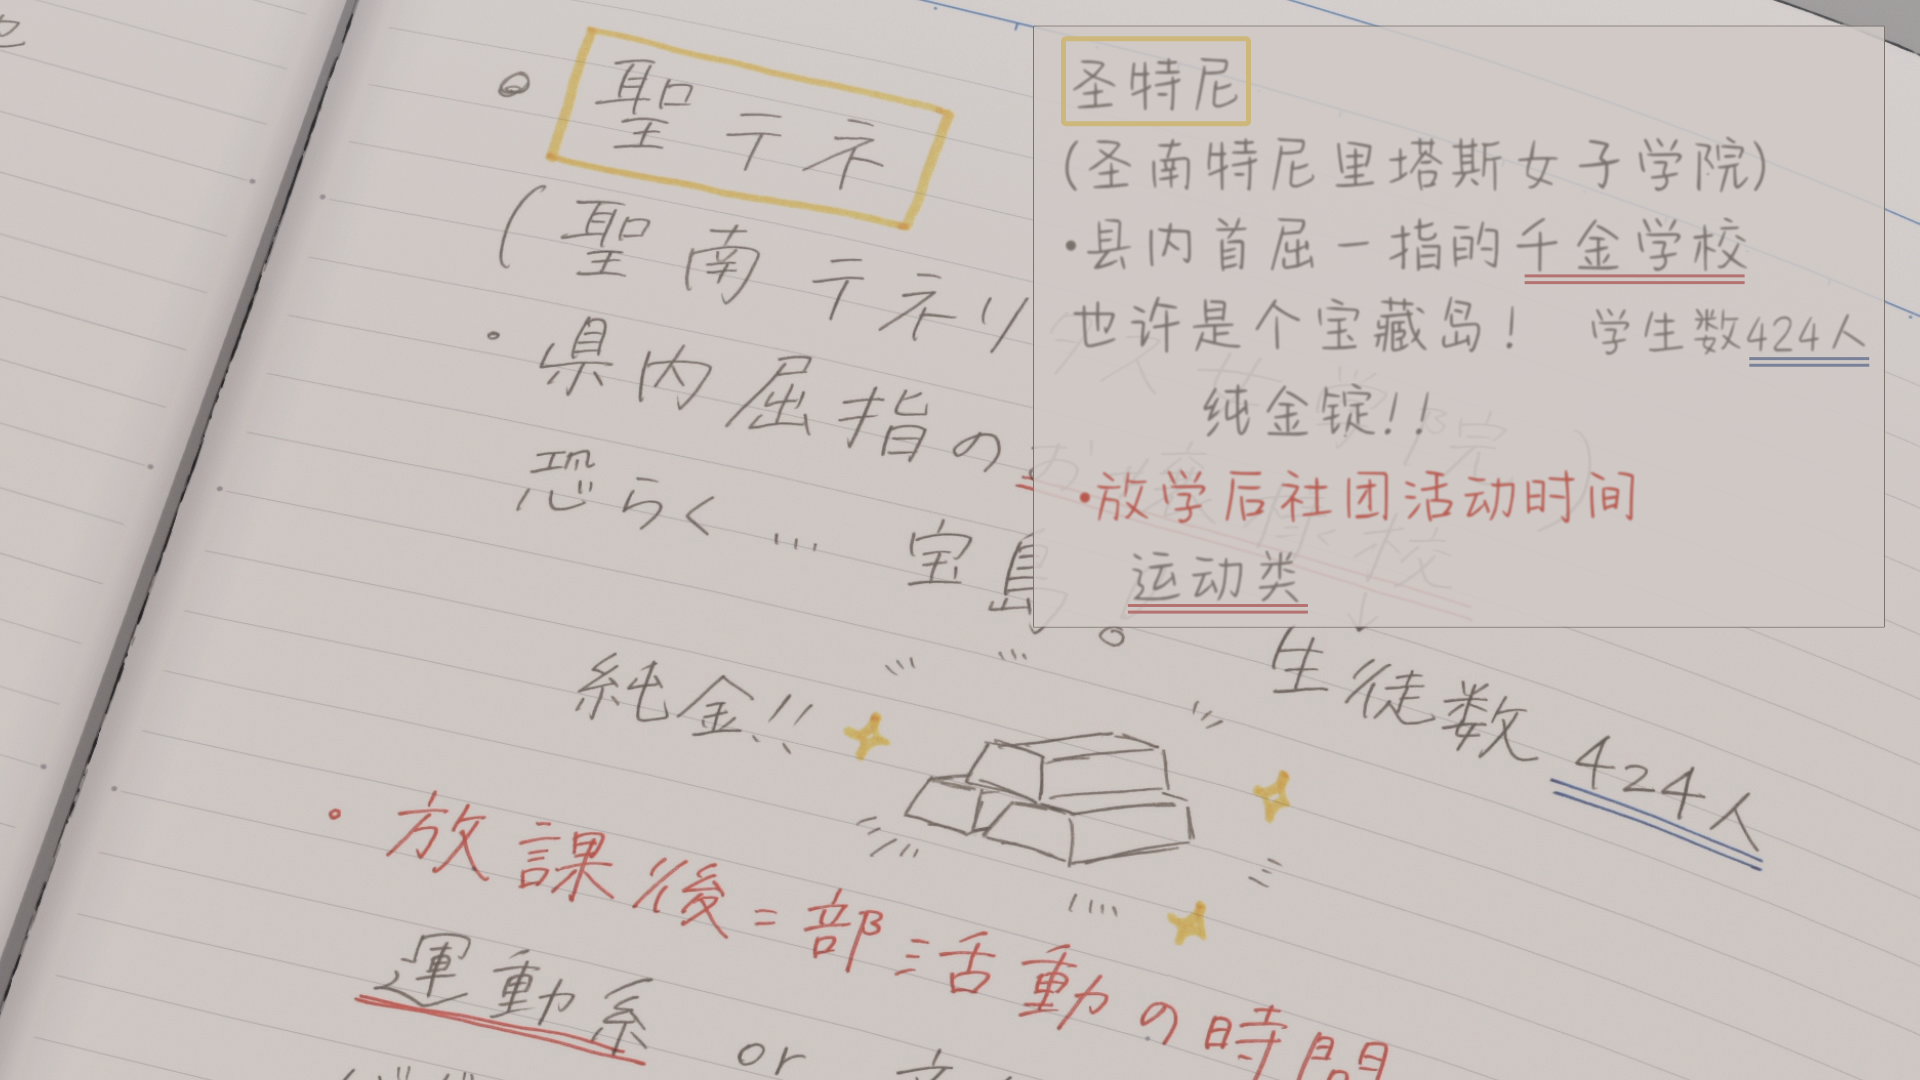 聖テネ
(聖南テネリ
・県内屈指の
恐らく… 宝島。
生徒数424人
純金!!
・放課後=部活動の時間
運動系 or
圣特尼
(圣南特尼里塔斯女子学院)
•县内首屈一指的千金学校
也许是个宝藏岛! 学生数424人
纯金锭!!
•放学后社团活动时间
运动类